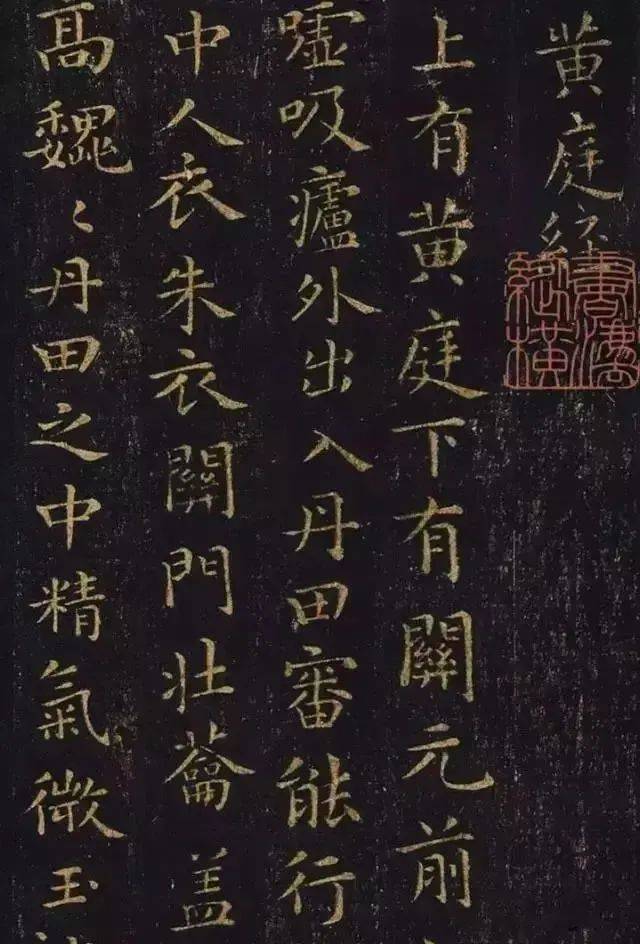 黄庭經
上有黄庭下有關元前
噓吸廬外出入丹田審能行
中人衣朱衣關門壮蘥盖
高巍〻丹田之中精氣微玉